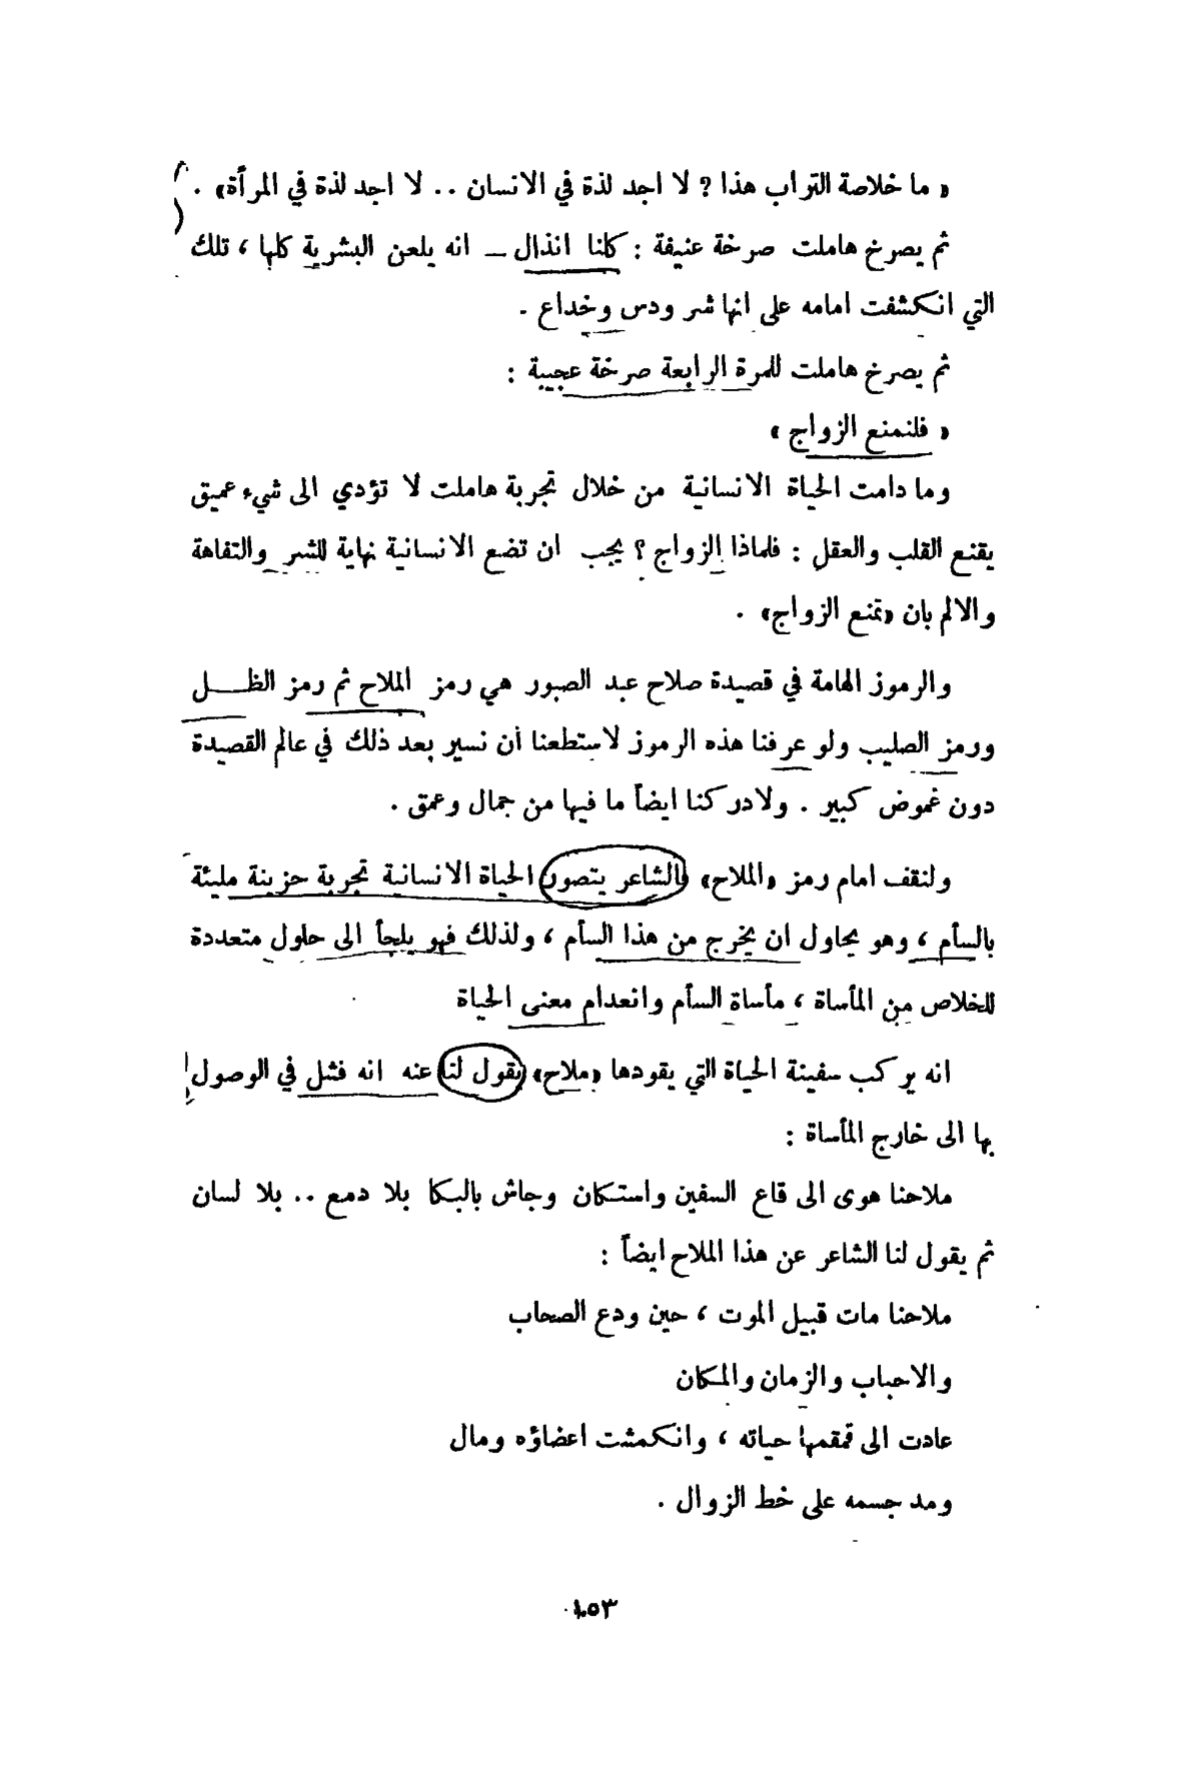 « ما خلاصة التراب هذا ? لا اجد لذة في الانسان .. لا اجد لذة في المرأة» .
ثم يصرخ هاملت صرخة عنيفة : كلنا انذال ــ انه يلعن البشرية كلها ، تلك
التي انكشفت امامه على انها شر ودس وخداع .
ثم يصرخ هاملت للمرة الرابعة صرخة عجيبة :
« فلنمنع الزواج »
وما دامت الحياة الانسانية من خلال تجربة هاملت لا تؤدي الى شيء عميق
يقنع القلب والعقل : فلماذا الزواج ؟ يجب ان تضع الانسانية نهاية للشر والتفاهة
والالم بان «تمنع الزواج» .
والرموز الهامة في قصيدة صلاح عبد الصبور هي رمز الملاح ثم رمز الظـــل
ورمز الصليب ولو عرفنا هذه الرموز لاستطعنا أن نسير بعد ذلك في عالم القصيدة
دون غموض كبير . ولادركنا ايضاً ما فيها من جمال وعمق .
ولنقف امام رمز «الملاح» فالشاعر يتصور الحياة الانسانية تجربة حزينة مليئة
بالسأم ، وهو يحاول ان يخرج من هذا السأم ، ولذلك فهو يلجأ الى حلول متعددة
للخلاص من المأساة ، مأساة السأم وانعدام معنى الحياة
انه يركب سفينة الحياة التي يقودها «ملاح» يقول لنا عنه انه فشل في الوصول
بها الى خارج المأساة :
ملاحنا هوى الى قاع السفين واستكان وجاش بالبكا بلا دمع .. بلا لسان
ثم يقول لنا الشاعر عن هذا الملاح ايضاً :
ملاحنا مات قبيل الموت ، حين ودع الصحاب
والاحباب والزمان والمكان
عادت الى قمقمها حياته ، وانكمشت اعضاؤه ومال
ومد جسمه على خط الزوال .
١٥٣